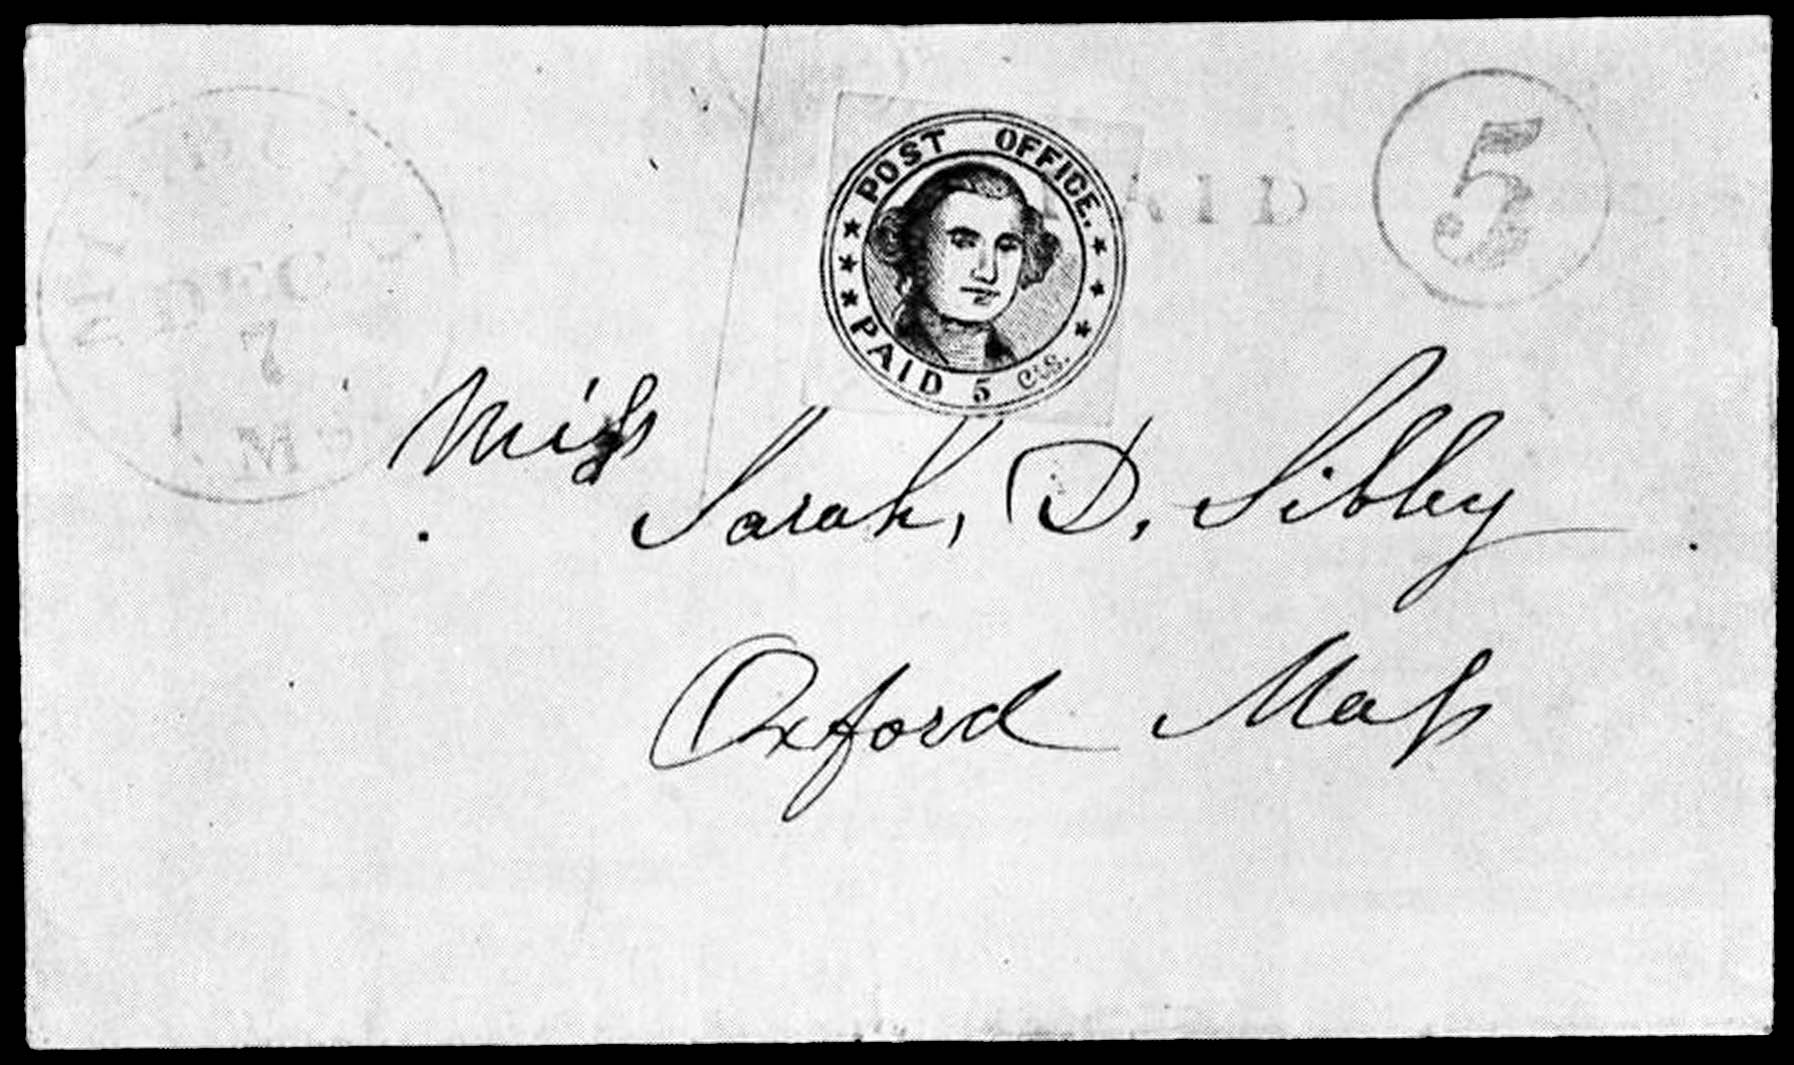 DEC
7
ME
POST OFFICE.
PAID 5 cts.
PAID
5
Miss
Sarah, D. Sibley
Oxford Mass